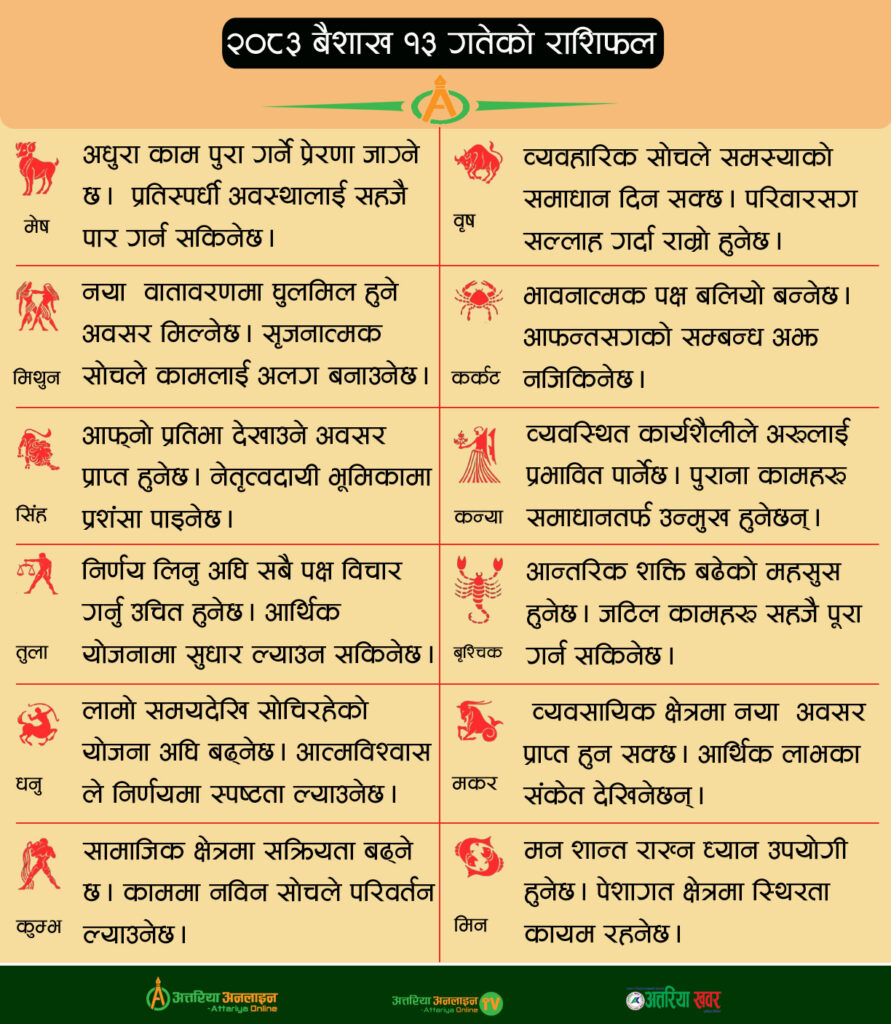 २०८३ बैशाख १३ गतेको राशिफल
अधुरा काम पुरा गर्ने प्रेरणा जाग्ने
छ। प्रतिस्पर्धी अवस्थालाई सहजै
पार गर्न सकिनेछ।
मेष
व्यवहारिक सोचले समस्याको
समाधान दिन सक्छ। परिवारसग
सल्लाह गर्दा राम्रो हुनेछ।
वृष
नया वातावरणमा घुलमिल हुने
अवसर मिल्नेछ। सृजनात्मक
सोचले कामलाई अलग बनाउनेछ।
मिथुन
भावनात्मक पक्ष बलियो बन्नेछ।
आफन्तसगको सम्बन्ध अझ
नजिकिनेछ।
कर्कट
आफ्नो प्रतिभा देखाउने अवसर
प्राप्त हुनेछ। नेतृत्वदायी भूमिकामा
प्रशंसा पाइनेछ।
सिंह
व्यवस्थित कार्यशैलीले अरुलाई
प्रभावित पार्नेछ। पुराना कामहरु
समाधानतर्फ उन्मुख हुनेछन्।
कन्या
निर्णय लिनु अघि सबै पक्ष विचार
गर्नु उचित हुनेछ। आर्थिक
योजनामा सुधार ल्याउन सकिनेछ।
तुला
आन्तरिक शक्ति बढेको महसुस
हुनेछ। जटिल कामहरु सहजै पूरा
गर्न सकिनेछ।
बृश्चिक
लामो समयदेखि सोचिरहेको
योजना अघि बढ्नेछ। आत्मविश्वास
ले निर्णयमा स्पष्टता ल्याउनेछ।
धनु
व्यवसायिक क्षेत्रमा नया अवसर
प्राप्त हुन सक्छ। आर्थिक लाभका
संकेत देखिनेछन्।
मकर
सामाजिक क्षेत्रमा सक्रियता बढ्ने
छ। काममा नविन सोचले परिवर्तन
ल्याउनेछ।
कुम्भ
मन शान्त राख्न ध्यान उपयोगी
हुनेछ। पेशागत क्षेत्रमा स्थिरता
कायम रहनेछ।
मिन
अत्तरिया अनलाइन
-Attariya Online
अत्तरिया अनलाइन TV
-Attariya Online
अत्तरिया खबर